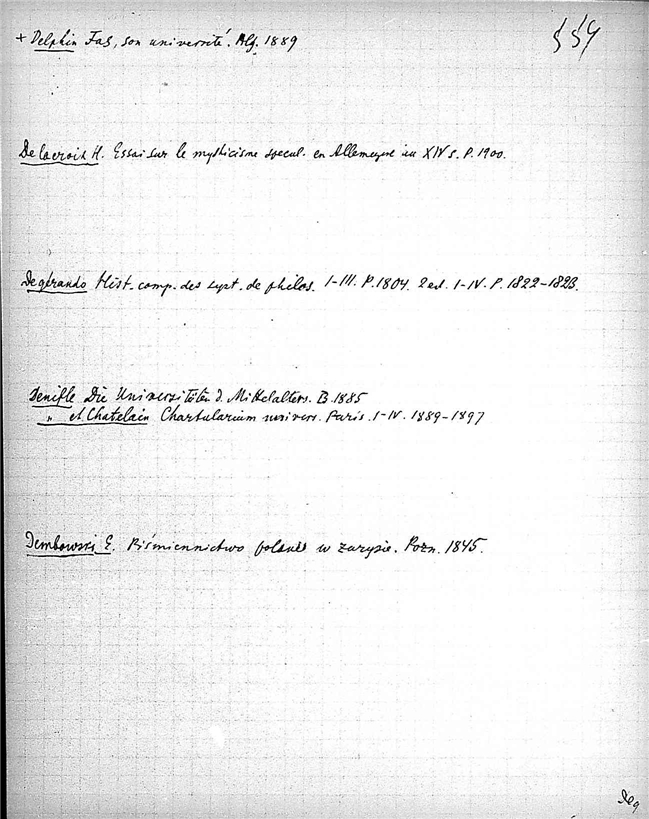 + Delphin Fas, son université. Alg. 1889
Delacroix H. Essai sur le mysticisme specul. en Allemagne au XIV s. P. 1900.
Degérando Hist. comp. des syst. de philos. I-III. P. 1804. 2 ed. I-IV. P. 1822-1823.
Denifle Die Universitäten d. Mittelalters. B. 1885
" et Chatelain Chartularium univers. Paris. I-IV. 1889-1897
Dembowski E. Piśmiennictwo polskie w zarysie. Pozn. 1845.